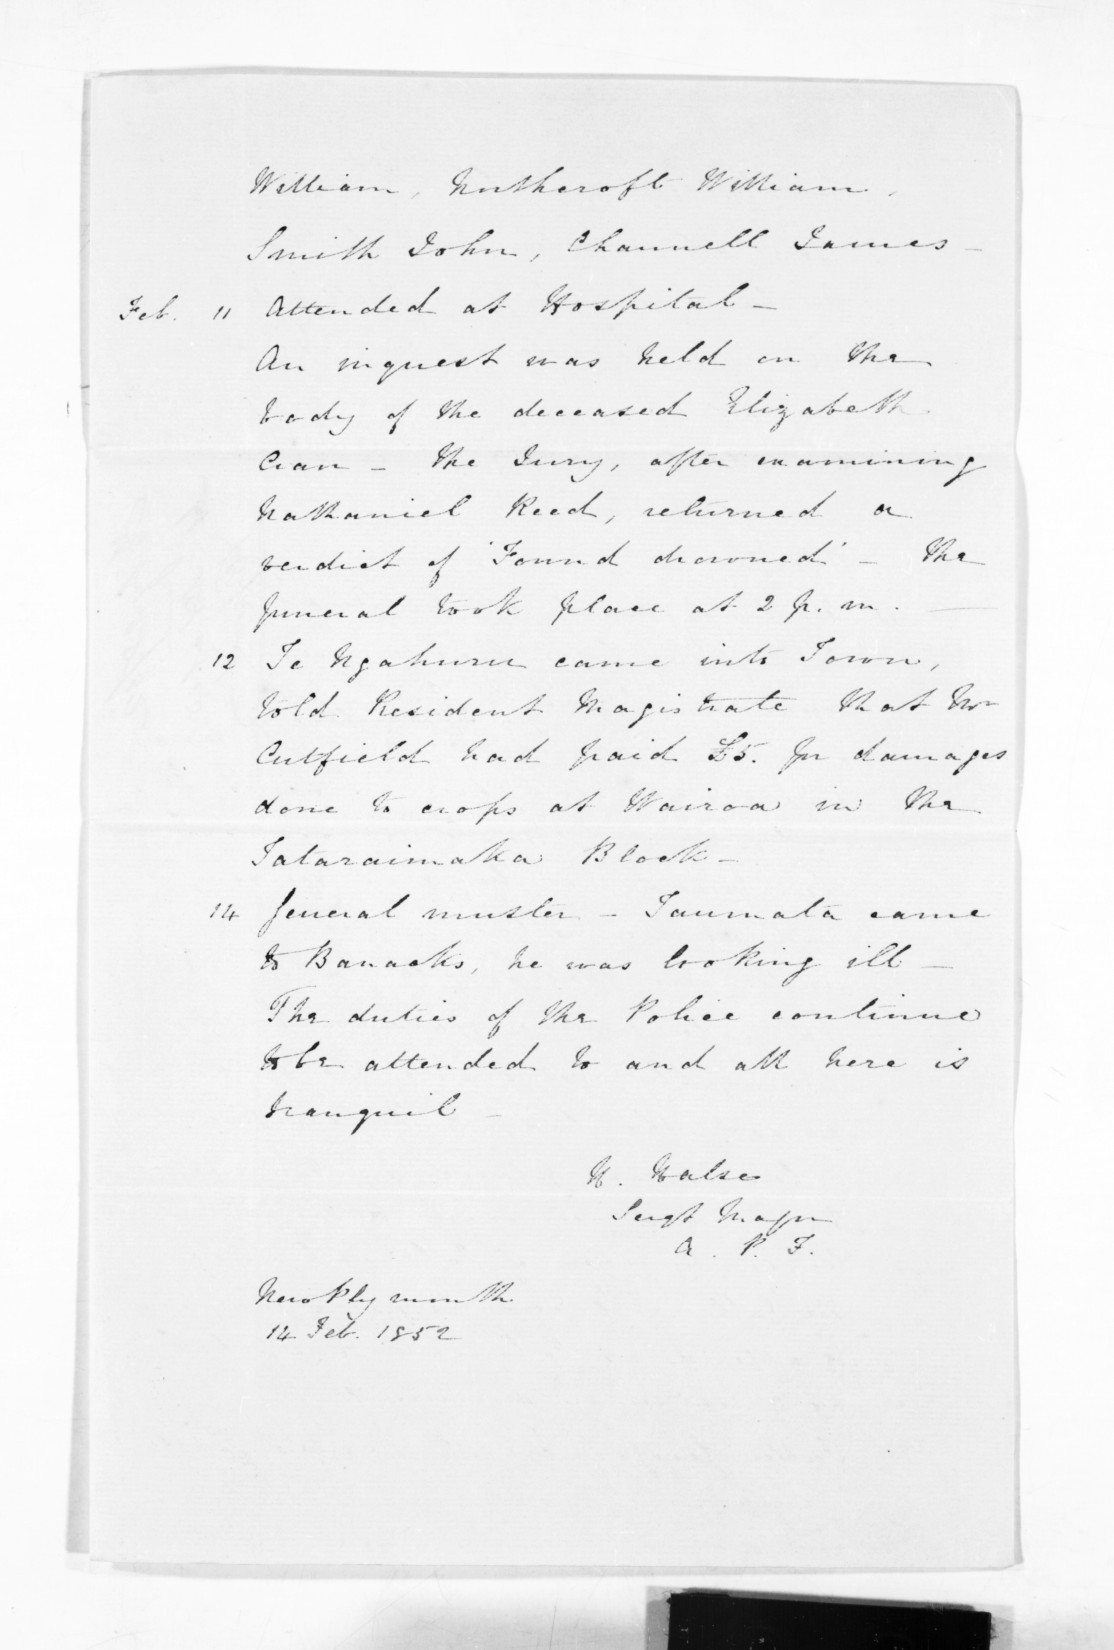 William, Northcroft William,
Smith John, Channell James -
Feb. 11 Attended at Hospital -
An inquest was held on the
body of the deceased Elizabeth
Cran - The Jury, after examining
Nathaniel Reed, returned a
verdict of 'Found drowned' - The
funeral took place at 2 p.m. -
12 Te Ngahuru came into Town,
told Resident Magistrate that Mr
Cutfield had paid £5. for damages
done to crops at Wairoa in the
Tataraimaka Block -
14 General muster - Taumata came
to Barracks, he was looking ill -
The duties of the Police continue
to be attended to and all here is
tranquil -
H. Halse
Sergt Major
A. P. F.
New Plymouth
14 Feb. 1852